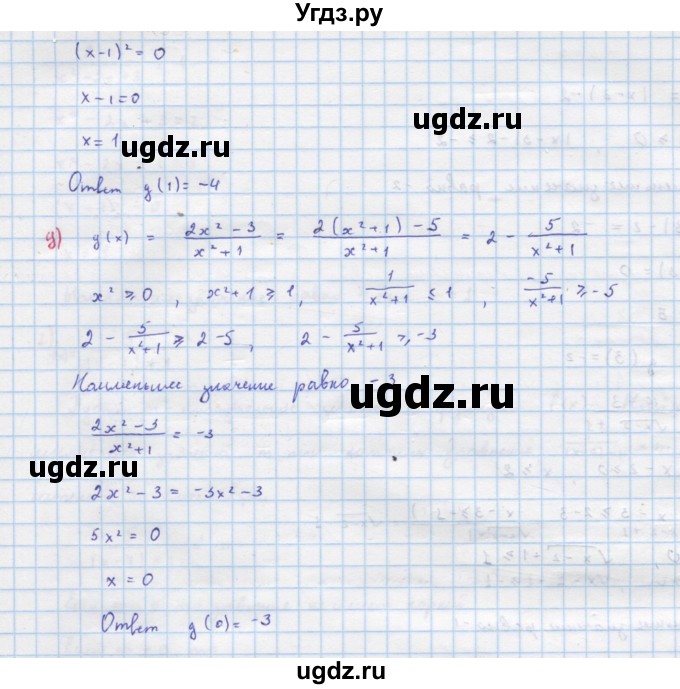 Угдз.ру
(x-1)² = 0
x-1=0
x=1
ugdz.ru
ugdz.ru
Ответ g(1)=-4
g) g(x) = (2x²-3)/(x²+1) = (2(x²+1)-5)/(x²+1) = 2 - 5/(x²+1)
x² ⩾ 0, x²+1 ⩾ 1, 1/(x²+1) ⩽ 1, -5/(x²+1) ⩾ -5
ugdz.ru
ugdz.ru
2 - 5/(x²+1) ⩾ 2-5, 2 - 5/(x²+1) ⩾ -3
Наименьшее значение равно -3
ugdz.ru
(2x²-3)/(x²+1) = -3
ugdz.ru
ugdz.ru
2x²-3 = -3x²-3
5x² = 0
x = 0
Ответ g(0) = -3
ugdz.ru
ugdz.ru